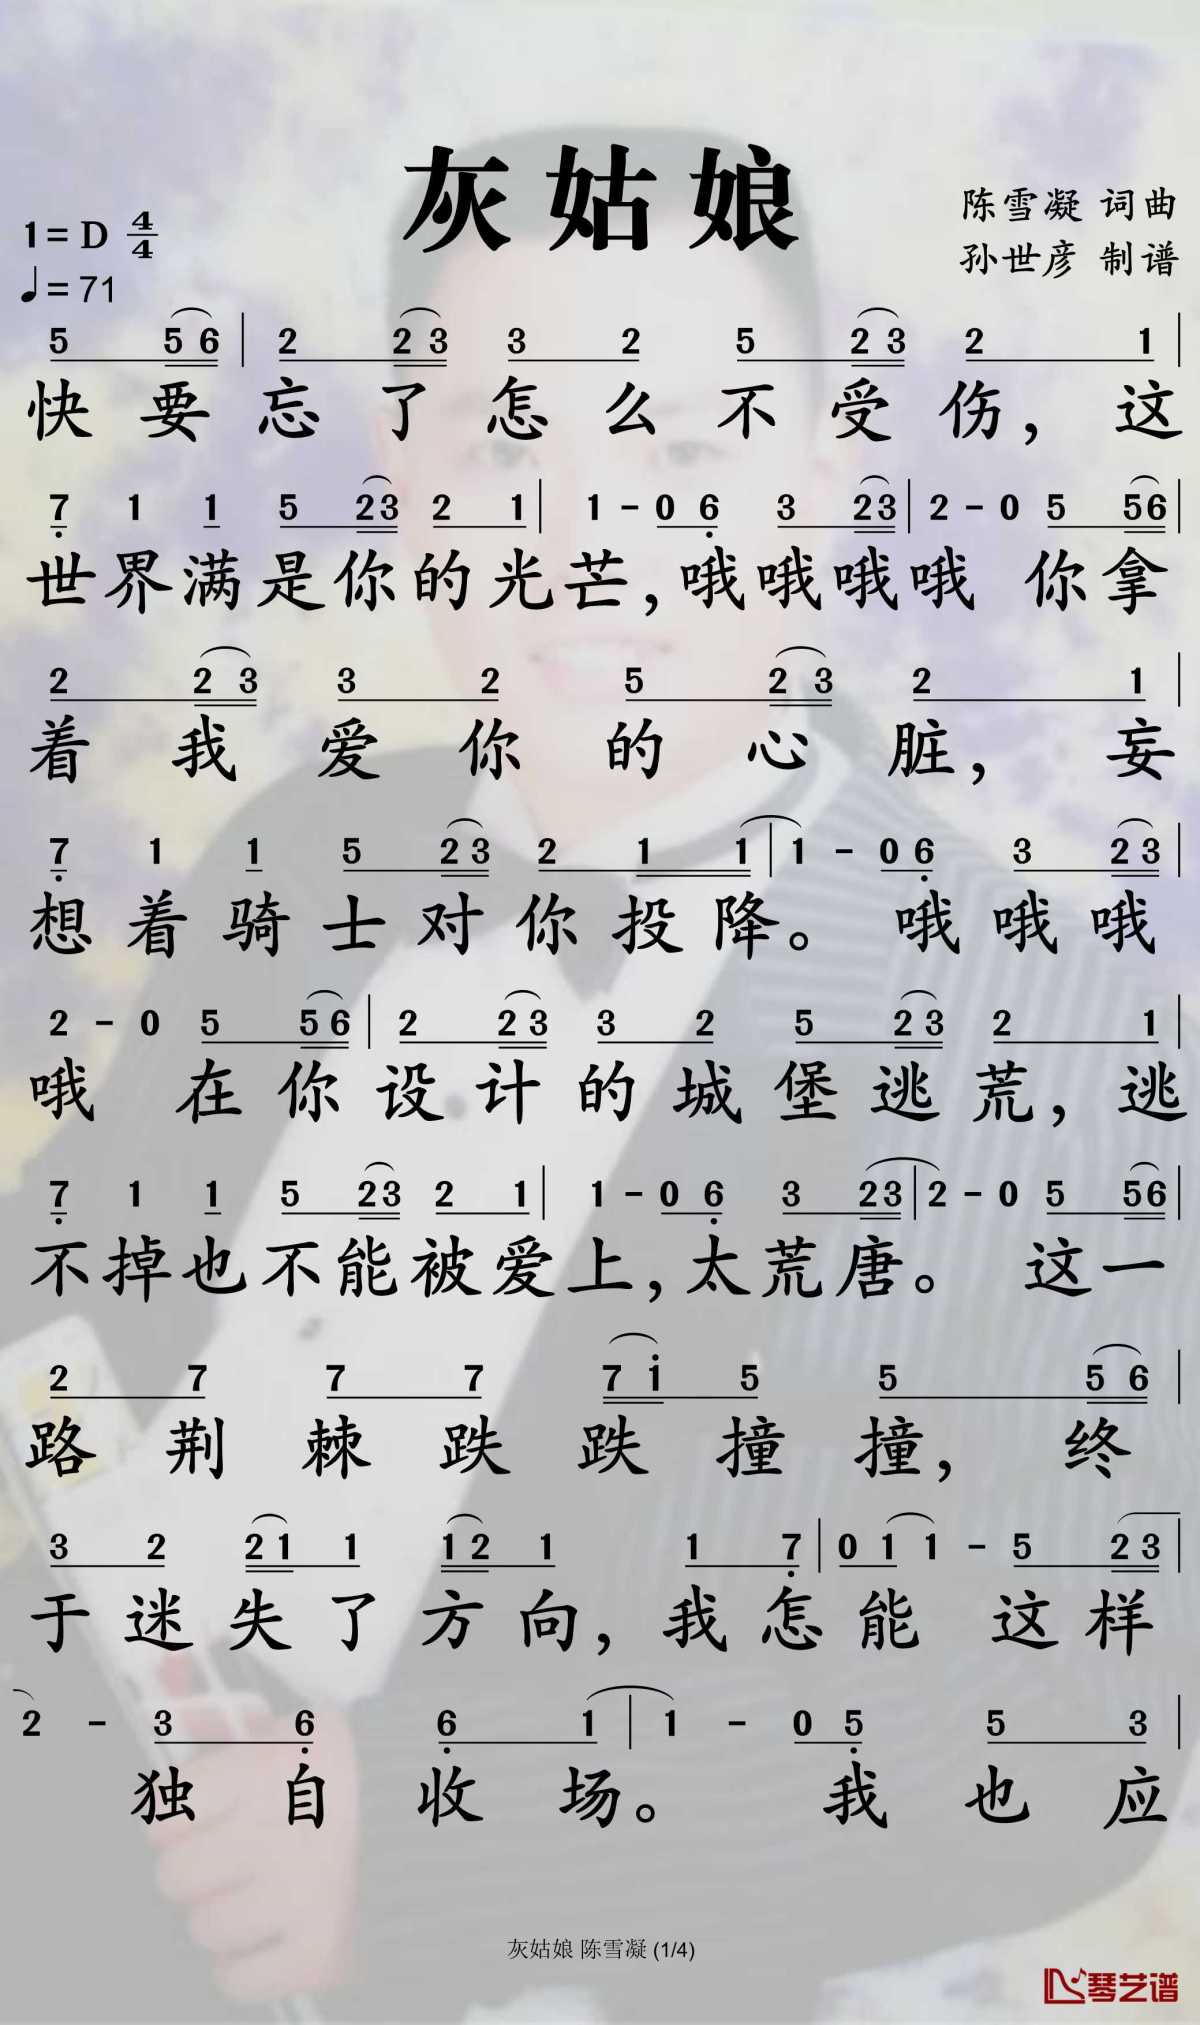 灰姑娘
陈雪凝 词曲
孙世彦 制谱
1=D 4/4
♩=71
5 5 6 | 2 2 3 3 2 5 2 3 2 1 |
快要忘了怎么不受伤，这
7 1 1 5 2 3 2 1 | 1 - 0 6 3 2 3 | 2 - 0 5 5 6 |
世界满是你的光芒，哦哦哦哦 你拿
2 2 3 3 2 5 2 3 2 1 |
着我爱你的心脏，妄
7 1 1 5 2 3 2 1 1 | 1 - 0 6 3 2 3 |
想着骑士对你投降。 哦哦哦
2 - 0 5 5 6 | 2 2 3 3 2 5 2 3 2 1 |
哦 在你设计的城堡逃荒，逃
7 1 1 5 2 3 2 1 | 1 - 0 6 3 2 3 | 2 - 0 5 5 6 |
不掉也不能被爱上，太荒唐。 这一
2 7 7 7 7 1 5 5 5 6 |
路荆棘跌跌撞撞，终
3 2 2 1 1 1 2 1 1 7 | 0 1 1 - 5 2 3 |
于迷失了方向，我怎能 这样
2 - 3 6 6 1 | 1 - 0 5 5 3 |
独自收场。 我也应
灰姑娘 陈雪凝 (1/4)
琴艺谱